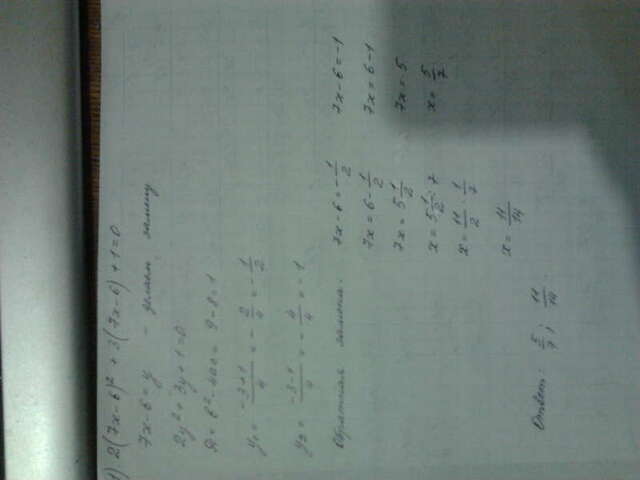 1) 2(7x-6)² + 3(7x-6) + 1 = 0
7x-6 = y - делаем замену
2y² + 3y + 1 = 0
D = b² - 4ac = 9 - 8 = 1
y₁ = \frac{-3+1}{4} = -\frac{2}{4} = -\frac{1}{2}
y₂ = \frac{-3-1}{4} = -\frac{4}{4} = -1
Обратная замена.
7x-6 = -\frac{1}{2}
7x = 6 - \frac{1}{2}
7x = 5\frac{1}{2}
x = 5\frac{1}{2} : 7
x = \frac{11}{2} · \frac{1}{7}
x = \frac{11}{14}
7x-6 = -1
7x = 6-1
7x = 5
x = \frac{5}{7}
Ответ: \frac{5}{7}; \frac{11}{14}.